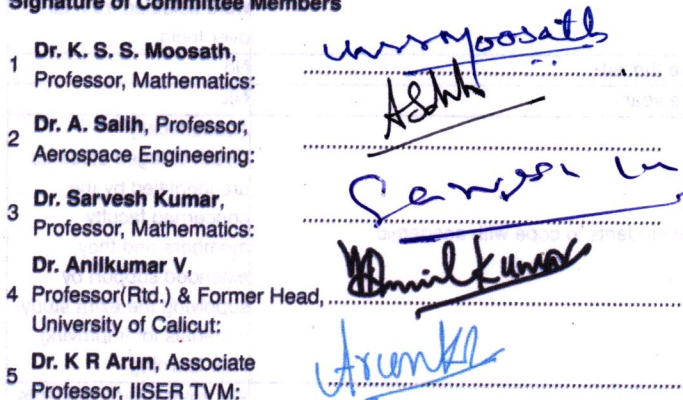 Signature of Committee Members
1 Dr. K. S. S. Moosath,
Professor, Mathematics:
kssmoosath
2 Dr. A. Salih, Professor,
Aerospace Engineering:
3 Dr. Sarvesh Kumar,
Professor, Mathematics:
4 Dr. Anilkumar V,
Professor(Rtd.) & Former Head,
University of Calicut:
Anilkumar
5 Dr. K R Arun, Associate
Professor, IISER TVM:
Arun KR